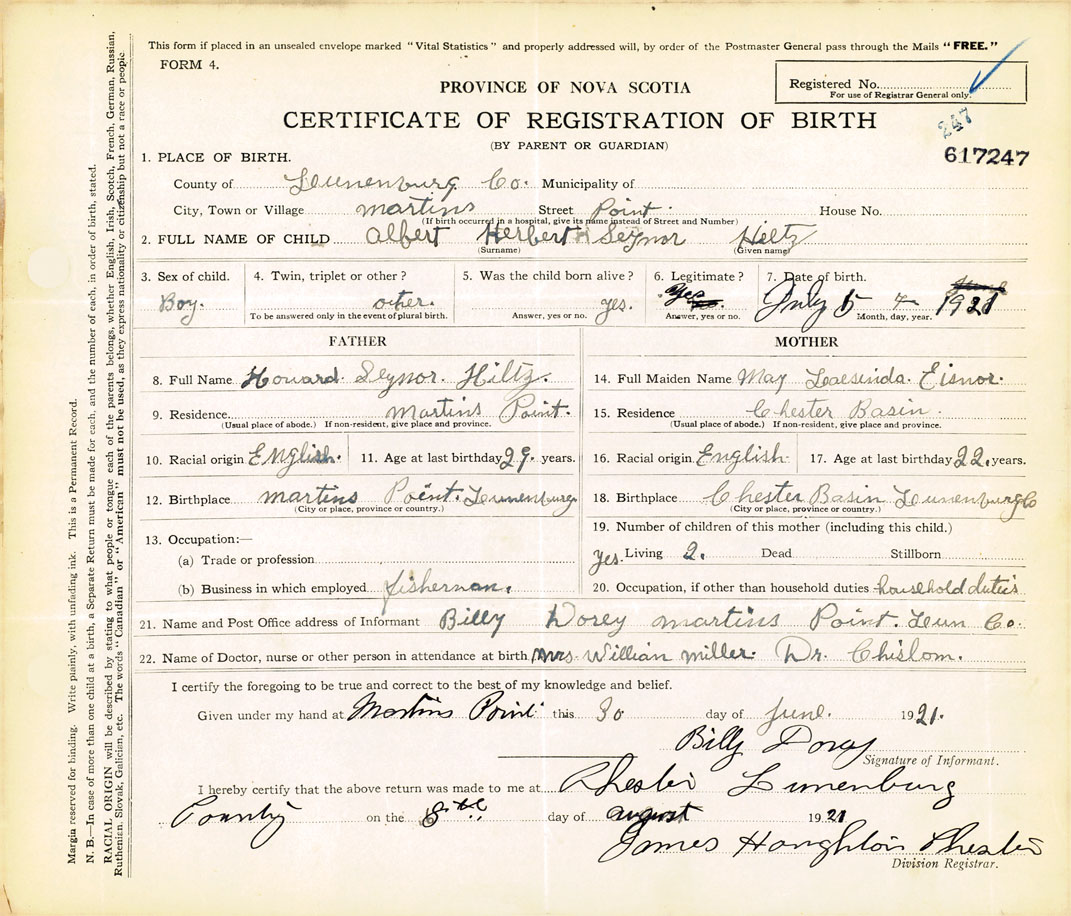 This form if placed in an unsealed envelope marked "Vital Statistics" and properly addressed will, by order of the Postmaster General pass through the Mails "FREE."
FORM 4.
Registered No.
For use of Registrar General only.
PROVINCE OF NOVA SCOTIA
CERTIFICATE OF REGISTRATION OF BIRTH
247
(BY PARENT OR GUARDIAN)
617247
1. PLACE OF BIRTH.
County of Leunenburg Co. Municipality of
City, Town or Village martins Street Point. House No.
(If birth occurred in a hospital, give its name instead of Street and Number)
2. FULL NAME OF CHILD albert Herbert Seynor Hiltz
(Surname) (Given name)
3. Sex of child. 4. Twin, triplet or other? 5. Was the child born alive? 6. Legitimate? 7. Date of birth.
Boy. other. yes. Yes July 7 1921
To be answered only in the event of plural birth. Answer, yes or no. Answer, yes or no. Month, day, year.
FATHER MOTHER
8. Full Name Howard Seynor Hiltz. 14. Full Maiden Name May Eisnor.
9. Residence martins Point. 15. Residence Chester Basin.
(Usual place of abode.) If non-resident, give place and province. (Usual place of abode.) If non-resident, give place and province.
10. Racial origin English. 11. Age at last birthday 29. years. 16. Racial origin English 17. Age at last birthday 22. years.
12. Birthplace martins Point. Leunenburg 18. Birthplace Chester Basin Leunenburg Co
(City or place, province or country.) (City or place, province or country.)
13. Occupation:— 19. Number of children of this mother (including this child.)
(a) Trade or profession yes. Living 2. Dead Stillborn
(b) Business in which employed fisherman. 20. Occupation, if other than household duties household dutis
21. Name and Post Office address of Informant Billy Dorey martins Point. Leun Co.
22. Name of Doctor, nurse or other person in attendance at birth. Mrs. Willian Miller. Dr. Chislom.
I certify the foregoing to be true and correct to the best of my knowledge and belief.
Given under my hand at Martins Point this 30 day of June. 1921.
Billy Dorey
Signature of Informant.
I hereby certify that the above return was made to me at Chester Lunenburg
County on the 8th day of august 1921
James Houghton Chester
Division Registrar.
Margin reserved for binding. Write plainly, with unfading ink. This is a Permanent Record.
N. B.—In case of more than one child at a birth, a Separate Return must be made for each, and the number of each, in order of birth, stated.
RACIAL ORIGIN will be described by stating to what people or tongue each of the parents belongs, whether English, Irish, Scotch, French, German, Russian,
Ruthenian, Slovak, Galician, etc. The words "Canadian" or "American" must not be used, as they express nationality or citizenship but not a race or people.